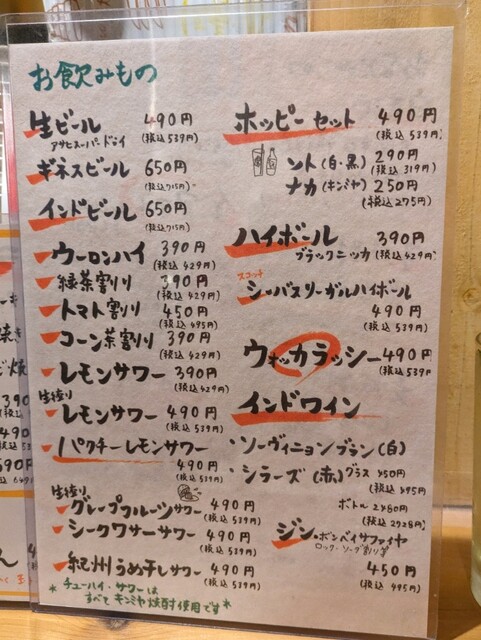 お飲みもの
生ビール 490円
アサヒスーパードライ (税込539円)
ギネスビール 650円
(税込715円)
インドビール 650円
(税込715円)
ウーロンハイ 390円
(税込429円)
緑茶割り 390円
(税込429円)
トマト割り 450円
(税込495円)
コーン茶割り 390円
(税込429円)
レモンサワー 390円
(税込429円)
生搾り
レモンサワー 490円
(税込539円)
パクチーレモンサワー
490円
(税込539円)
生搾り
グレープフルーツサワー 490円
(税込539円)
シークワサーサワー 490円
(税込539円)
紀州うめ干しサワー 490円
(税込539円)
*チューハイ・サワーは
すべてキンミヤ焼酎使用です*
ホッピーセット 490円
(税込539円)
ソト(白・黒) 290円
(税込319円)
ナカ(キンミヤ) 250円
(税込275円)
ハイボール 390円
ブラックニッカ (税込429円)
スコッチ
シーバスリーガルハイボール
490円
(税込539円)
ウォッカラッシー 490円
(税込539円
インドワイン
・ソーヴィニョンブラン(白)
・シラーズ(赤) グラス 450円
(税込495円
ボトル 2480円
(税込2728円)
ジン・ボンベイサファイヤ
ロック・ソーダ割り等
450円
(税込495円)
390
490